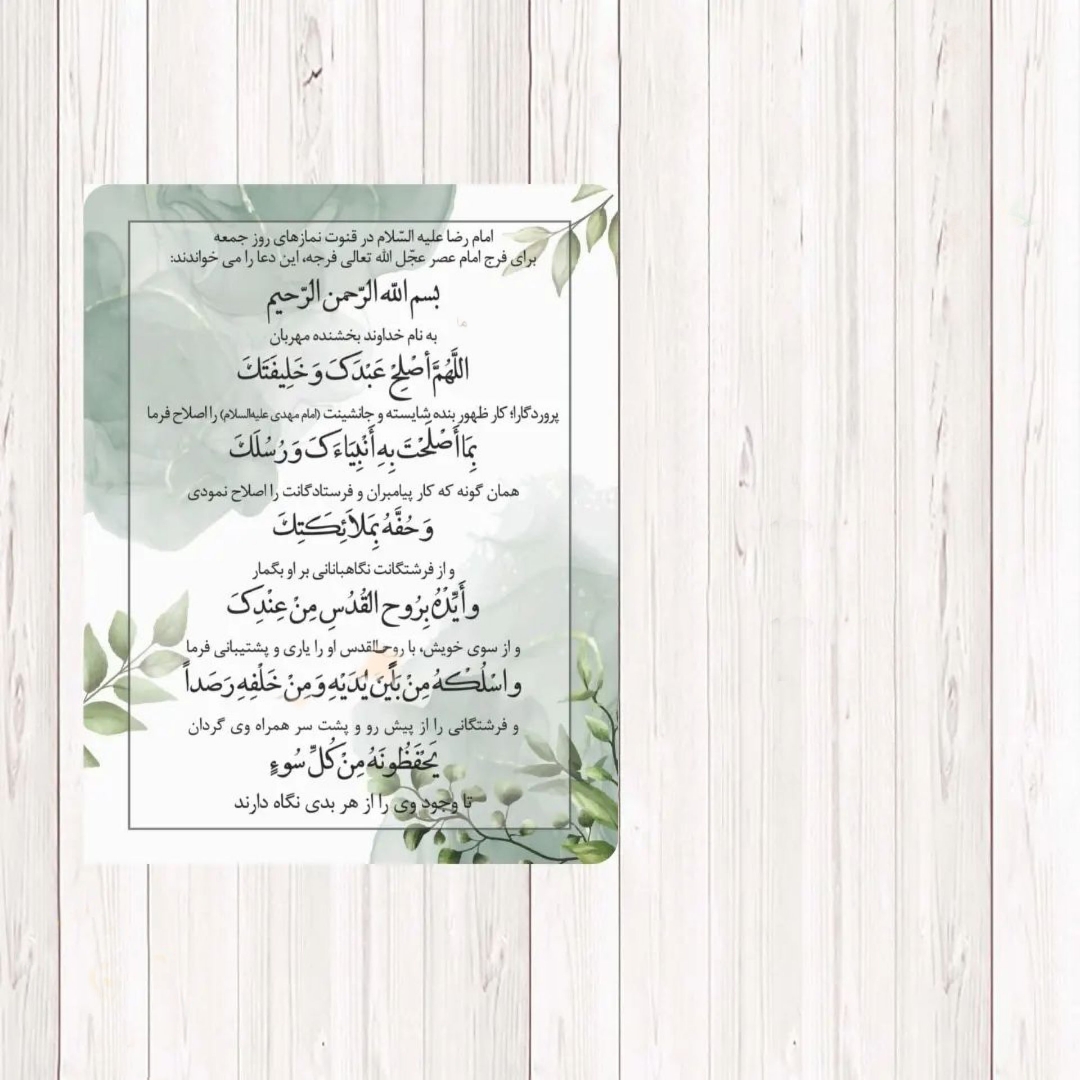 امام رضا علیه السّلام در قنوت نمازهای روز جمعه
برای فرج امام عصر عجّل الله تعالی فرجه، این دعا را می خواندند:
بسم الله الرّحمن الرّحیم
به نام خداوند بخشنده مهربان
اللَّهُمَّ أَصْلِحْ عَبْدَکَ وَ خَلِیفَتَكَ
پروردگارا؛ کار ظهور بنده شایسته و جانشینت (امام مهدی علیه‌السلام) را اصلاح فرما
بِمَا أَصْلَحْتَ بِهِ أَنْبِیَاءَکَ وَ رُسُلَكَ
همان گونه که کار پیامبران و فرستادگانت را اصلاح نمودی
وَ حُفَّهُ بِمَلاَئِکَتِكَ
و از فرشتگانت نگاهبانانی بر او بگمار
و أَیِّدْهُ بِرُوح القُدُسِ مِنْ عِنْدِکَ
و از سوی خویش، با روح‌القدس او را یاری و پشتیبانی فرما
و اسْلُکْهُ مِنْ بَیْنِ یَدَیْهِ وَ مِنْ خَلْفِهِ رَصَداً
و فرشتگانی را از پیش رو و پشت سر همراه وی گردان
یَحْفَظُونَهُ مِنْ کُلِّ سُوءٍ
تا وجود وی را از هر بدی نگاه دارند